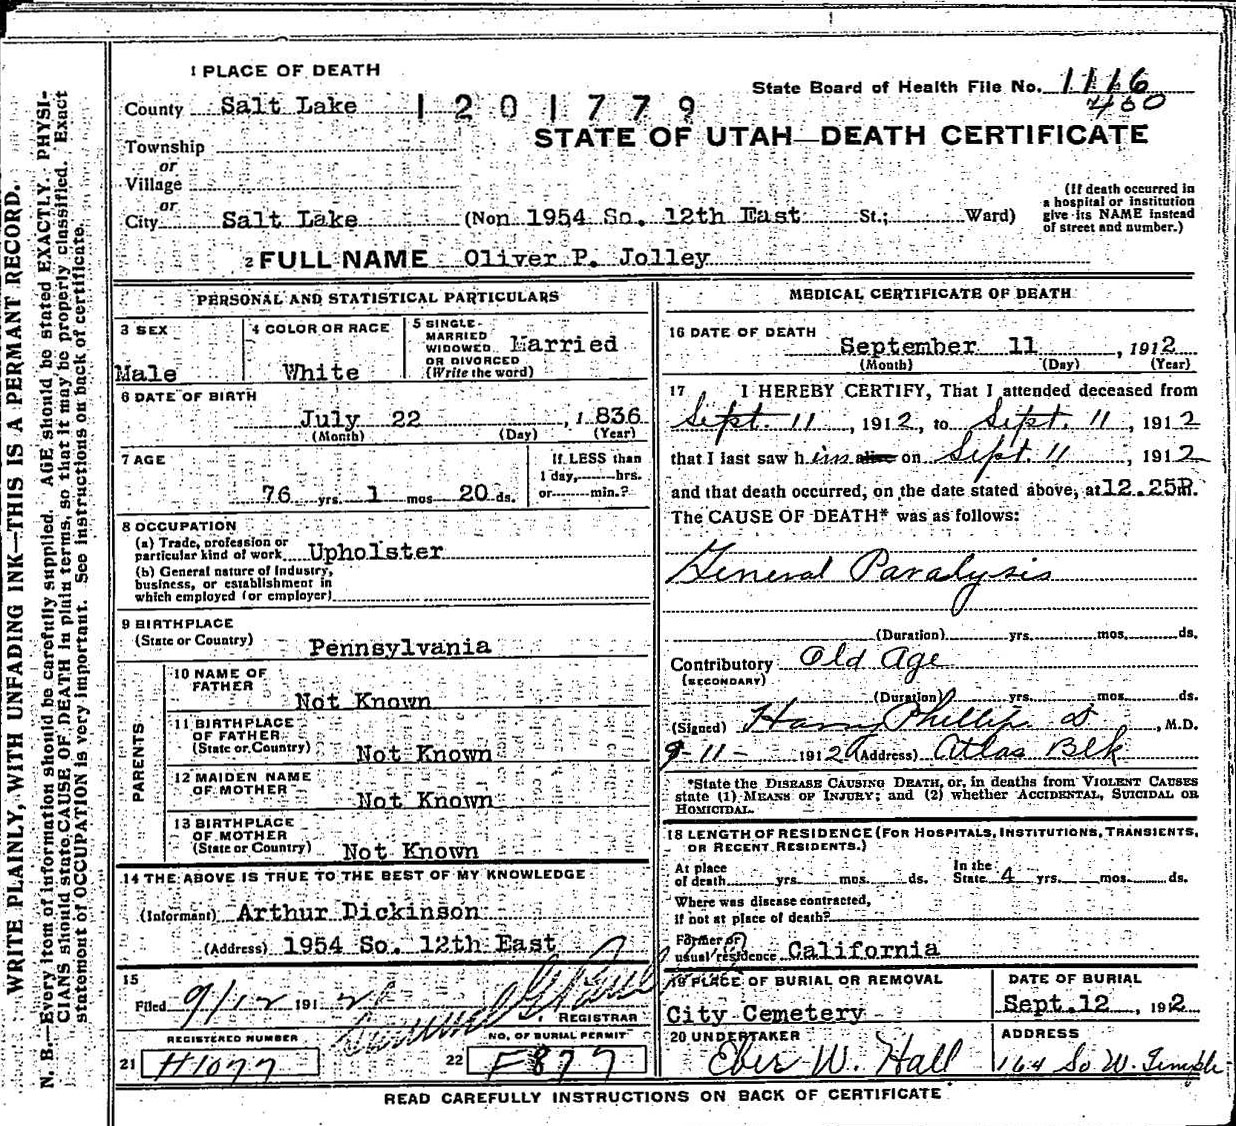 1 PLACE OF DEATH
County Salt Lake 1201779
State Board of Health File No. 1116
460
STATE OF UTAH—DEATH CERTIFICATE
Township
or
Village
or
City Salt Lake (Non 1954 So. 12th East St.; Ward)
(If death occurred in
a hospital or institution
give its NAME instead
of street and number.)
2 FULL NAME Oliver P. Jolley
PERSONAL AND STATISTICAL PARTICULARS
3 SEX
Male
4 COLOR OR RACE
White
5 SINGLE
MARRIED
WIDOWED
OR DIVORCED
(Write the word)
Married
6 DATE OF BIRTH
July 22, 1836
(Month) (Day) (Year)
7 AGE
76 yrs. 1 mos 20 ds.
If LESS than
1 day, hrs.
or min.?
8 OCCUPATION
(a) Trade, profession or
particular kind of work Upholster
(b) General nature of Industry,
business, or establishment in
which employed (or employer)
9 BIRTHPLACE
(State or Country) Pennsylvania
PARENTS
10 NAME OF
FATHER
Not Known
11 BIRTHPLACE
OF FATHER
(State or Country) Not Known
12 MAIDEN NAME
OF MOTHER
Not Known
13 BIRTHPLACE
OF MOTHER
(State or Country) Not Known
14 THE ABOVE IS TRUE TO THE BEST OF MY KNOWLEDGE
(Informant) Arthur Dickinson
(Address) 1954 So. 12th East
15
Filed 9/12 1912
REGISTRAR
REGISTERED NUMBER
21 H1077
NO. OF BURIAL PERMIT
22 F877
MEDICAL CERTIFICATE OF DEATH
16 DATE OF DEATH
September 11, 1912
(Month) (Day) (Year)
17 I HEREBY CERTIFY, That I attended deceased from
Sept. 11, 1912, to Sept. 11, 1912
that I last saw him alive on Sept. 11, 1912
and that death occurred, on the date stated above, at 12.25P.m.
The CAUSE OF DEATH* was as follows:
General Paralysis
(Duration) yrs. mos. ds.
Contributory Old Age
(SECONDARY)
(Duration) yrs. mos. ds.
(Signed) Harry Phillips, M.D.
9-11- 1912 (Address) Atlas Blk
*State the DISEASE CAUSING DEATH, or, in deaths from VIOLENT CAUSES
state (1) MEANS OF INJURY; and (2) whether ACCIDENTAL, SUICIDAL OR
HOMICIDAL.
18 LENGTH OF RESIDENCE (FOR HOSPITALS, INSTITUTIONS, TRANSIENTS,
OR RECENT RESIDENTS.)
At place
of death yrs. mos. ds.
In the
State 4 yrs. mos. ds.
Where was disease contracted,
if not at place of death?
Former or
usual residence California
19 PLACE OF BURIAL OR REMOVAL
City Cemetery
DATE OF BURIAL
Sept. 12, 1912
20 UNDERTAKER
Eber W. Hall
ADDRESS
164 So W. Temple
READ CAREFULLY INSTRUCTIONS ON BACK OF CERTIFICATE
WRITE PLAINLY, WITH UNFADING INK—THIS IS A PERMANT RECORD.
N. B.—Every item of information should be carefully supplied. AGE should be stated EXACTLY. PHYSI-
CIANS should state CAUSE OF DEATH in plain terms, so that it may be properly classified. Exact
statement of OCCUPATION is very important. See instructions on back of certificate.